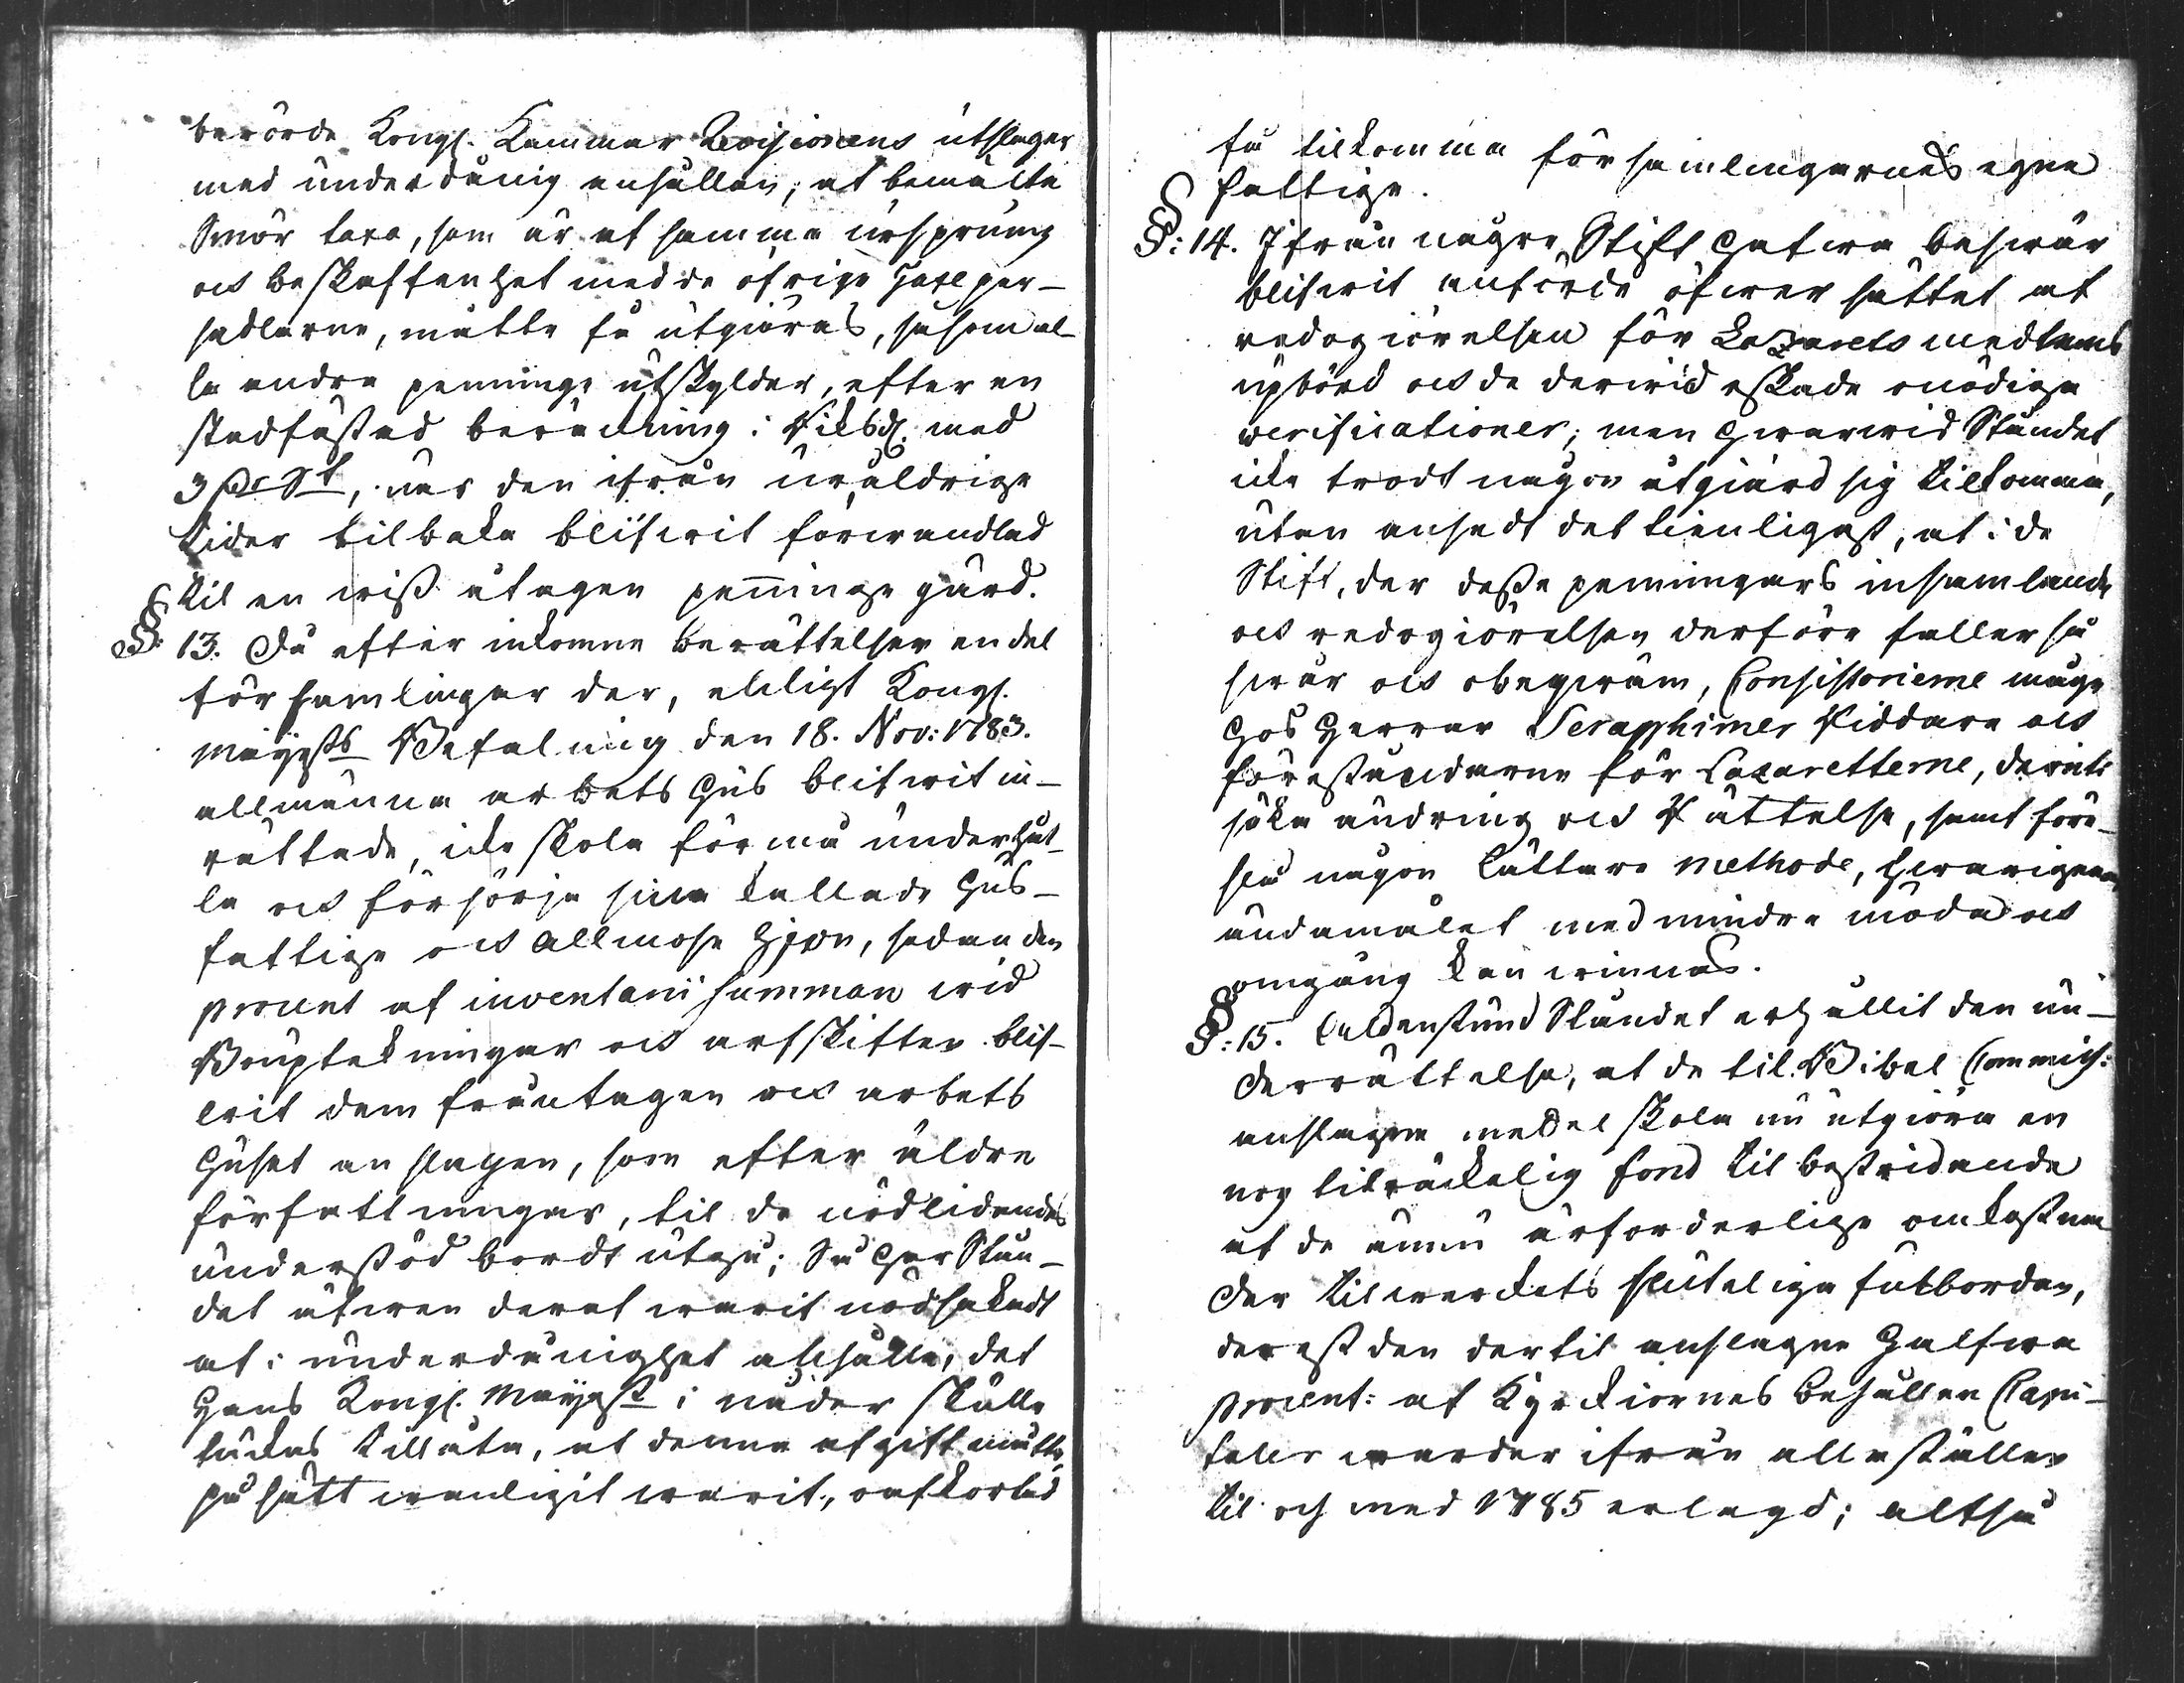 berörde Kongl. Kammar Revisionens utslager
med underdånig anhållan, at bemälte
Smör taxa, som är af samma ursprung
och beskaffenhet med de öfrige Taxe per-
sedlarne, måtte få utgiöras, såsom al-
la andra pennings utskylder, efter en
stadfästad beräkning i Riksd. med
3 Pr Ct, när den ifrån uråldrige
tider tilbaka blifwit förwandlad
til en wiss utagen penninge gärd.
§: 13. Då efter inkomne berättelser en del
församlingar der, enligt Kongl.
Mayts Befalning den 18. Nov: 1783.
allmänna arbets hus blifwit in-
rättade, icke skola förmå underhål-
la och försörja sina kallade hus-
fattige och Allmose hjon, sedan den
procent af inventarii summan wid
Bouptekningar och arfskiften blif-
wit dem fråntagen och arbets
huset anslagen, som efter äldre
författningar, til de nödlidandes
understöd bordt utgå; Så har Stån-
det äfwen deraf warit nödsakadt
at i underdånighet anhålla, det
Hans Kongl. Mayst i nåder skulle
täckas tillåta, at denna afgift måtte,
på sätt wanligit warit, oafkortad
få tilkomma församlingarnes egne
fattige.
§: 14. Ifrån någre Stift hafwa beswär
blifwit anförde öfwer sättet af
redogiörelsen för Lazarets medlens
upbörd och de derwid äskade onödiga
verificationer; men hwarwid Ståndet
icke trodt någon åtgiärd sig tilkomma,
utan ansedt det tienligast, at i de
Stift, der desse penningars insamlande
och redogiörelsen derföre faller så
swår och obeqwäm, Consistorierne måge
hos Herrar Seraphimer Riddare och
föreståndarne för Lazaretterne, derute
söka ändring och Rättelse, samt före-
slå någon lättare methode, hwarigenom
ändamålet med mindre möda och
omgång kan winnas.
§: 15. Aldenstund Ståndet erhållit den un-
derrättelse, at de til Bibel Commiss:
anslagne medel skola nu utgiöra en
nog tilräckelig fond til bestridande
af de ännu ärforderlige omkostna
der til werckets sluteliga fulbordan,
derest den dertil anslagne halfwa
procent: af Kyrckiornes behållne Capi-
taler warder ifrån alla ställen
til och med 1785 erlagd; altså